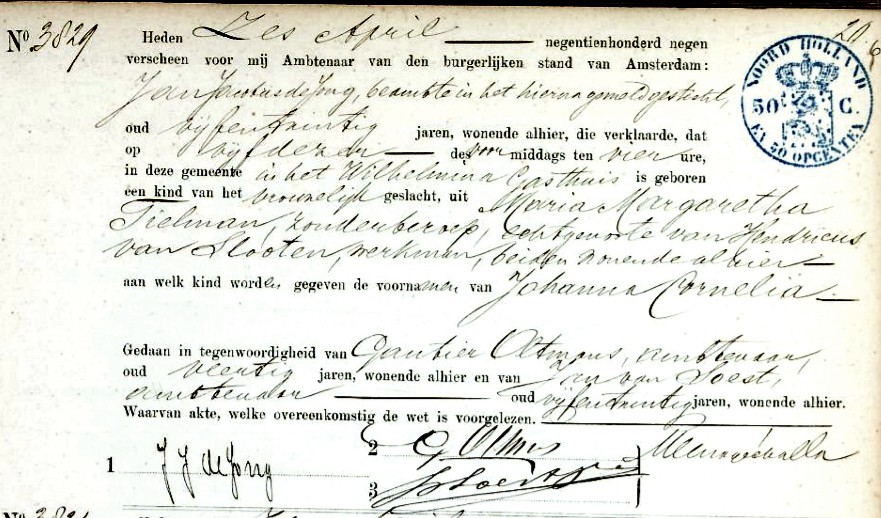 No. 3829
Heden Zes April negentienhonderd negen
verscheen voor mij Ambtenaar van den burgerlijken stand van Amsterdam:
Jan Jacobus de Jong, beambte in het hierna gemeld gesticht,
oud vijfentwintig jaren, wonende alhier, die verklaarde, dat
op vijf dezer des voormiddags ten vier ure,
in deze gemeente in het Wilhelmina Gasthuis is geboren
een kind van het vrouwelijk geslacht, uit Maria Margaretha
Tielman, zonder beroep, echtgenoote van Hendricus
van Slooten, werkman, beiden wonende alhier
aan welk kind worden gegeven de voornamen van Johanna Cornelia
Gedaan in tegenwoordigheid van Gautier Oltmans, ambtenaar,
oud veertig jaren, wonende alhier en van Jan van Soest,
ambtenaar oud vijfentwintig jaren, wonende alhier.
Waarvan akte, welke overeenkomstig de wet is voorgelezen.
1 J J de Jong
2
3
NOORD HOLLAND
50 C.
EN 50 OPCENTEN
No. 383